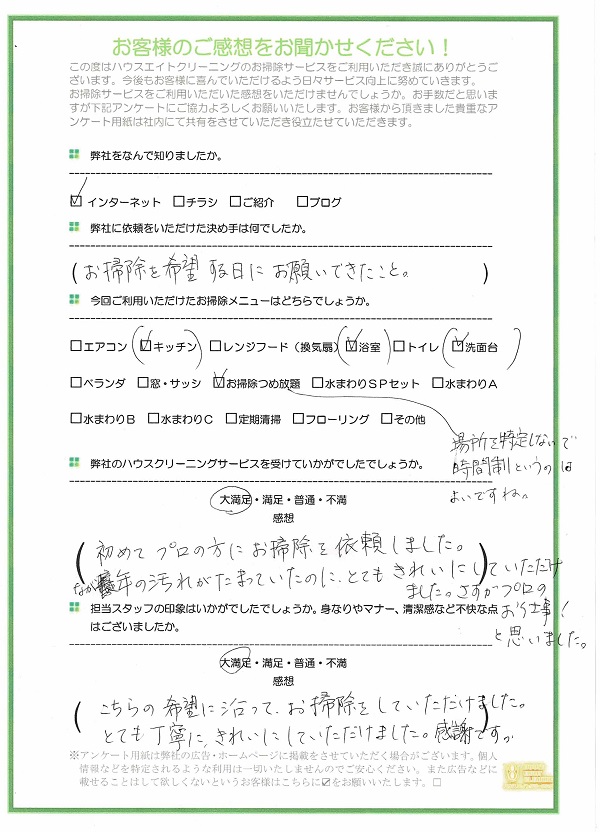 お客様のご感想をお聞かせください！
この度はハウスエイトクリーニングのお掃除サービスをご利用いただき誠にありがとうご
ざいます。今後もお客様に喜んでいただけるよう日々サービス向上に努めていきます。
お掃除サービスをご利用いただいた感想をいただけませんでしょうか。お手数だと思いま
すが下記アンケートにご協力よろしくお願いいたします。お客様から頂きました貴重なア
ンケート用紙は社内にて共有をさせていただき役立たせていただきます。
弊社をなんで知りましたか。
☑インターネット □チラシ □ご紹介 □ブログ
弊社に依頼をいただけた決め手は何でしたか。
(お掃除を希望する日にお願いできたこと。)
今回ご利用いただけたお掃除メニューはどちらでしょうか。
□エアコン (☑キッチン) □レンジフード（換気扇） (☑浴室) □トイレ (☑洗面台)
□ベランダ □窓・サッシ ☑お掃除つめ放題 □水まわりＳＰセット □水まわりＡ
□水まわりＢ □水まわりＣ □定期清掃 □フローリング □その他
場所を特定しないで
時間制というのは
よいですね。
弊社のハウスクリーニングサービスを受けていかがでしたでしょうか。
大満足・満足・普通・不満
感想
(初めてプロの方にお掃除を依頼しました。
なが年の汚れがたまっていたのに、とてもきれいにしていただけ
ました。さすがプロの
お仕事！
と思いました。)
担当スタッフの印象はいかがでしたでしょうか。身なりやマナー、清潔感など不快な点
はございましたか。
大満足・満足・普通・不満
感想
(こちらの希望に沿って、お掃除をしていただけました。
とても丁寧に、きれいにしていただけました。感謝です。)
※アンケート用紙は弊社の広告・ホームページに掲載をさせていただく場合がございます。個人
情報などを特定されるような利用は一切いたしませんのでご安心ください。また広告などに
載せることはして欲しくないというお客様はこちらに☑をお願いいたします。□